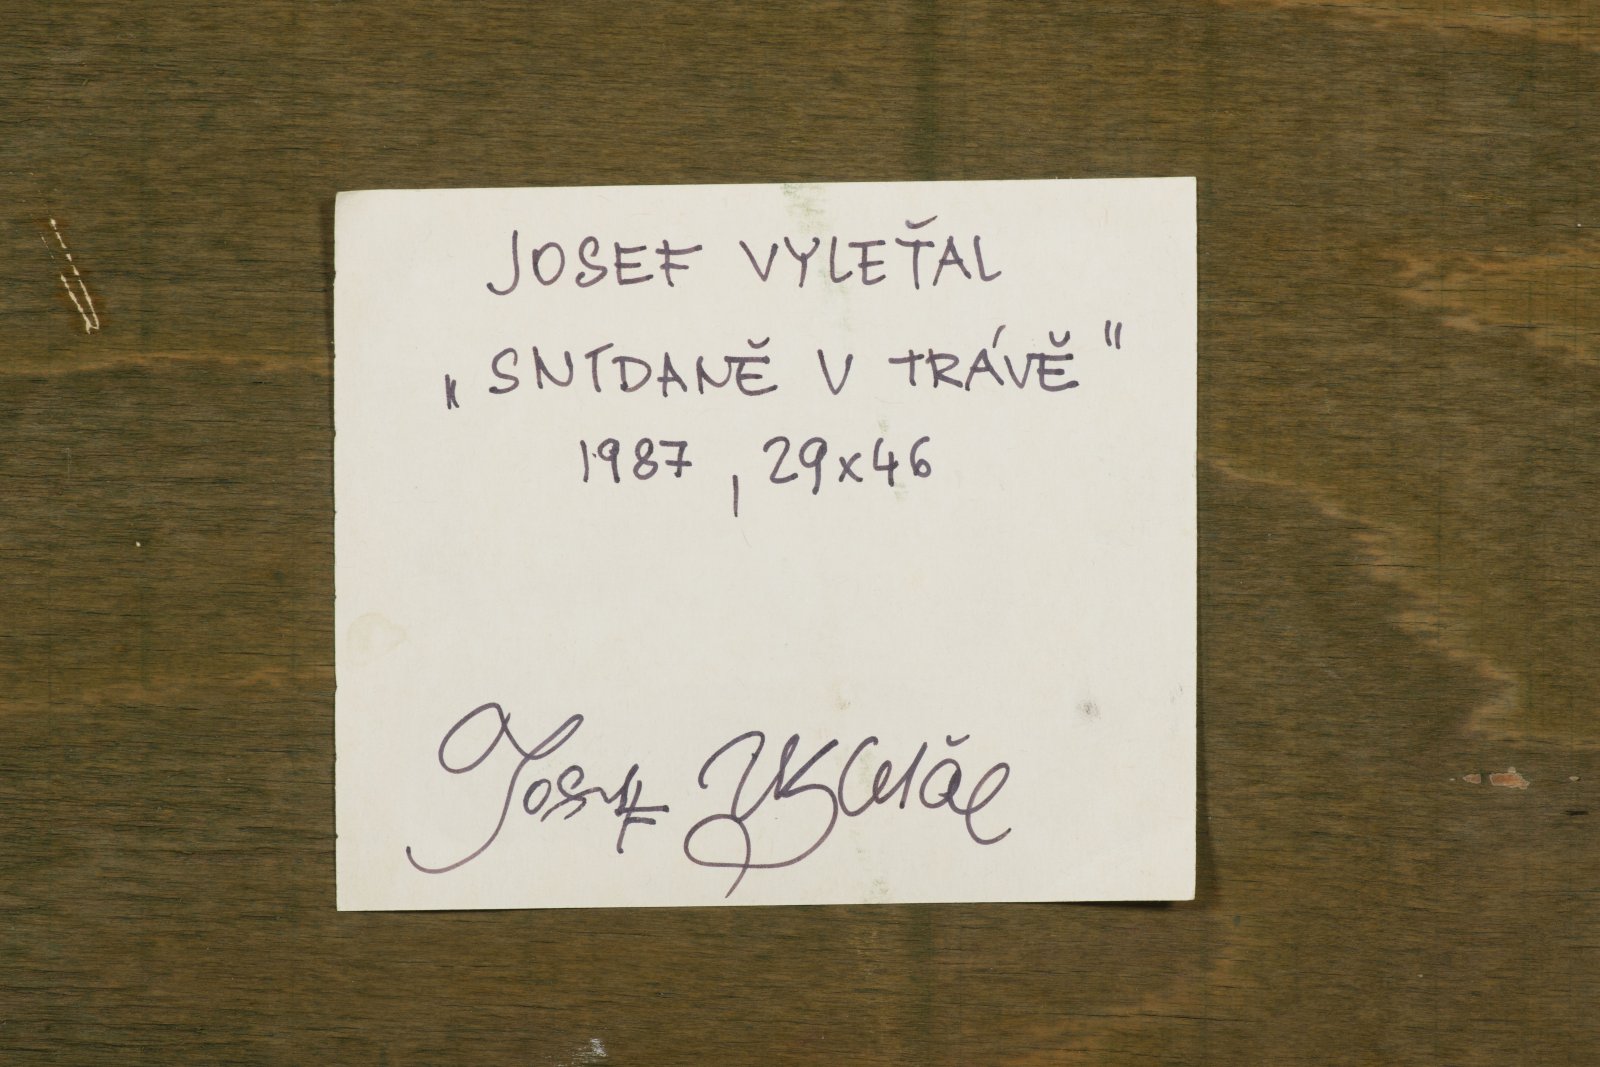 JOSEF VYLEŤAL
„SNÍDANĚ V TRÁVĚ"
1987, 29x46
Josef Vyleťal